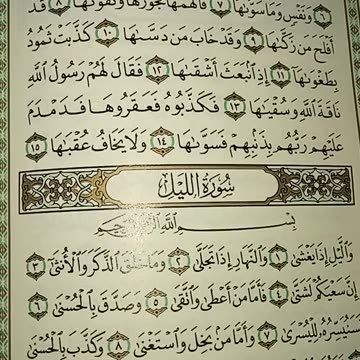 ٦ وَنَفْسٍ وَمَا سَوَّىٰهَا ٧ فَأَلْهَمَهَا فُجُورَهَا وَتَقْوَىٰهَا ٨ قَدْ
أَفْلَحَ مَن زَكَّىٰهَا ٩ وَقَدْ خَابَ مَن دَسَّىٰهَا ١٠ كَذَّبَتْ ثَمُودُ
بِطَغْوَىٰهَا ١١ إِذِ ٱنۢبَعَثَ أَشْقَىٰهَا ١٢ فَقَالَ لَهُمْ رَسُولُ ٱللَّهِ
نَاقَةَ ٱللَّهِ وَسُقْيَٰهَا ١٣ فَكَذَّبُوهُ فَعَقَرُوهَا فَدَمْدَمَ
عَلَيْهِمْ رَبُّهُم بِذَنۢبِهِمْ فَسَوَّىٰهَا ١٤ وَلَا يَخَافُ عُقْبَٰهَا ١٥
سُورَةُ ٱللَّيْلِ
بِسْمِ ٱللَّهِ ٱلرَّحْمَٰنِ ٱلرَّحِيمِ
وَٱلَّيْلِ إِذَا يَغْشَىٰ ١ وَٱلنَّهَارِ إِذَا تَجَلَّىٰ ٢ وَمَا خَلَقَ ٱلذَّكَرَ وَٱلْأُنثَىٰٓ ٣
إِنَّ سَعْيَكُمْ لَشَتَّىٰ ٤ فَأَمَّا مَنْ أَعْطَىٰ وَٱتَّقَىٰ ٥ وَصَدَّقَ بِٱلْحُسْنَىٰ ٦
فَسَنُيَسِّرُهُۥ لِلْيُسْرَىٰ ٧ وَأَمَّا مَنۢ بَخِلَ وَٱسْتَغْنَىٰ ٨ وَكَذَّبَ بِٱلْحُسْنَىٰ